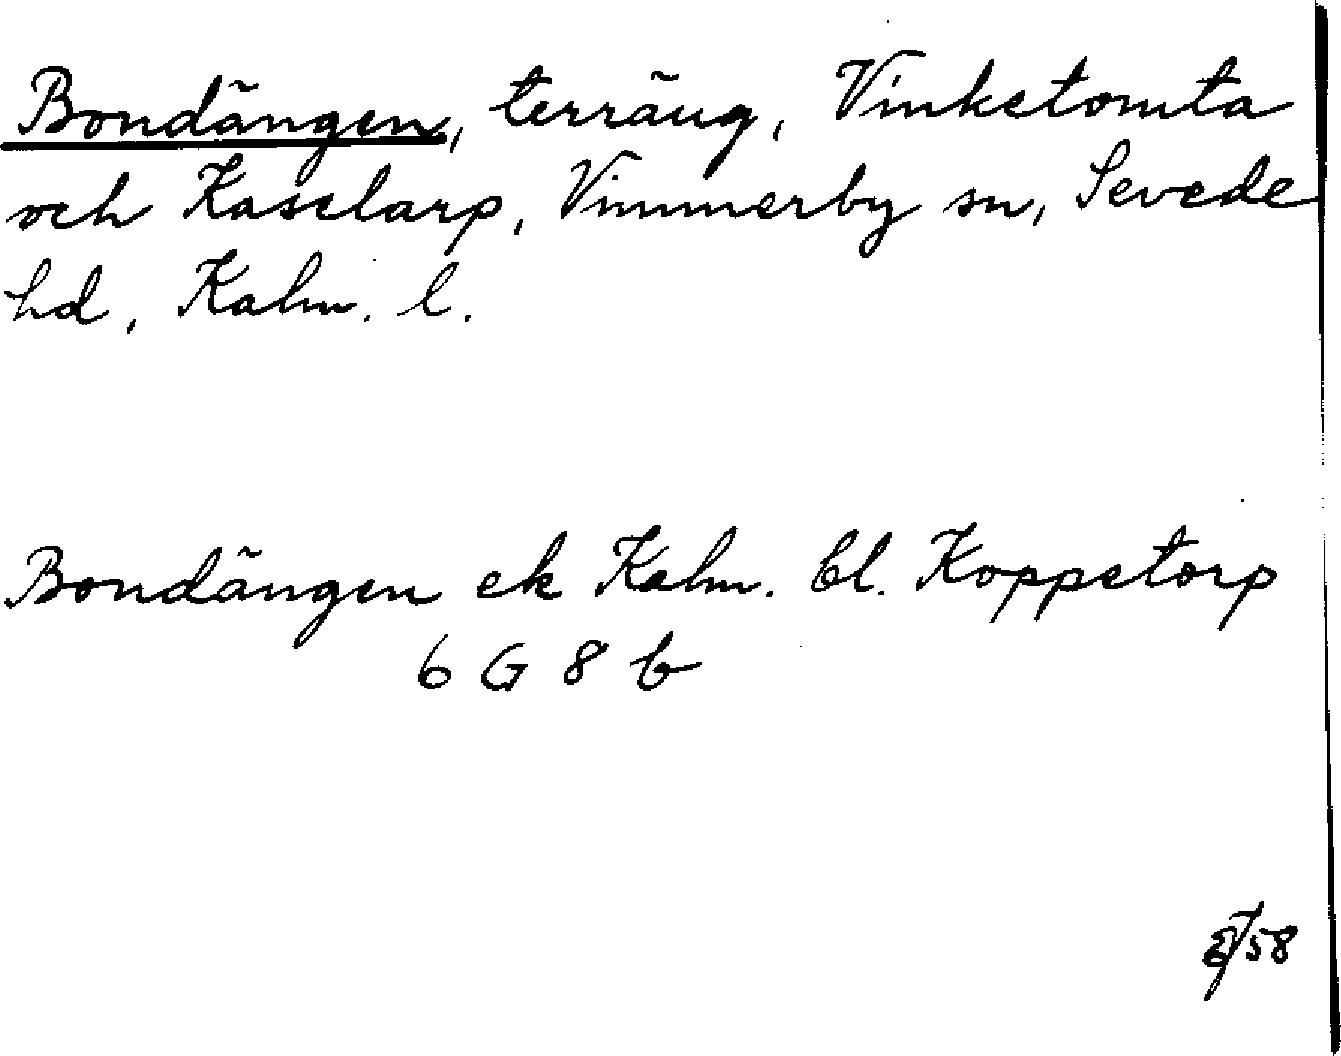 Bondängen, terräng, Vinketomta
och Kaselarp, Vimmerby sn, Sevede
hd, Kalm. l.
Bondängen ek Kalm. bl. Koppetorp
6 G 8 b
58